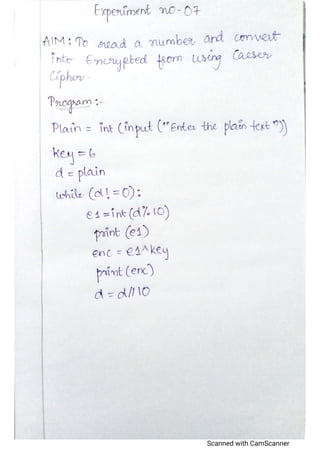 Experiment no-07
AIM: To read a number and convert
into Encrypted form using Caeser
Cipher.
Program:-
Plain = int (input ("Enter the plain text"))
key = 6
d = plain
while (d! = 0):
e1 = int(d%10)
print (e1)
enc = e1^key
print (enc)
d = d//10
Scanned with CamScanner